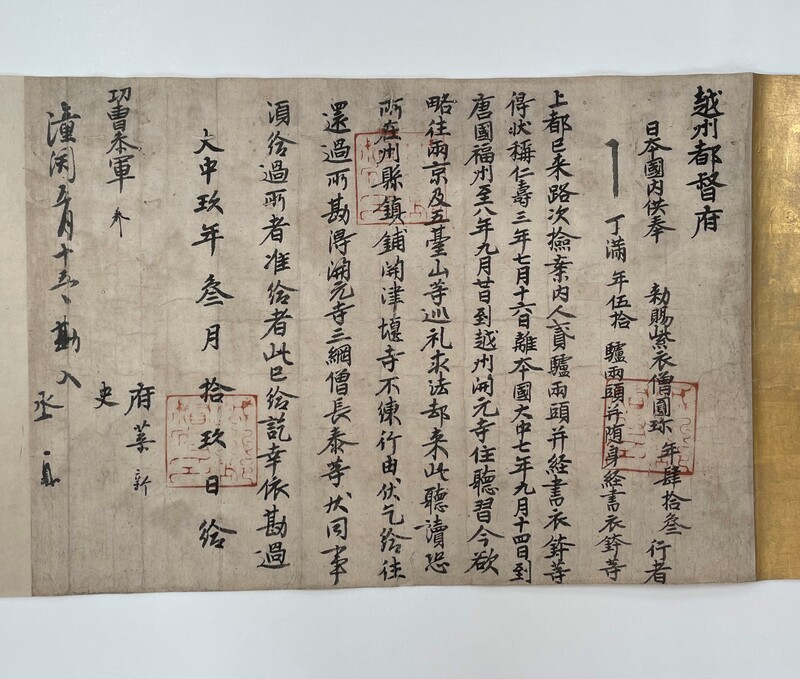 越州都督府
日本國内供奉 勅賜紫衣僧圓珎年肆拾叁行者
丁滿年伍拾驢兩頭并随身經書衣鉢等
上都已来路次撿案内人貳驢兩頭并經書衣鉢等
得状稱仁壽三年七月十六日離本國大中七年九月十四日到
唐國福州至八年九月廿日到越州開元寺住聽習今欲
略往兩京及五臺山等巡礼求法却来此聽讀恐
所在州縣鎮鋪開津堰寺不練行由伏乞給往
還過所勘得開元寺三綱僧長泰等状同事
須給過所者准給者此已給訖幸依勘過
大中玖年叁月拾玖日給
府葉新
功曹叅軍
史
潼関五月十五日勘入
丞